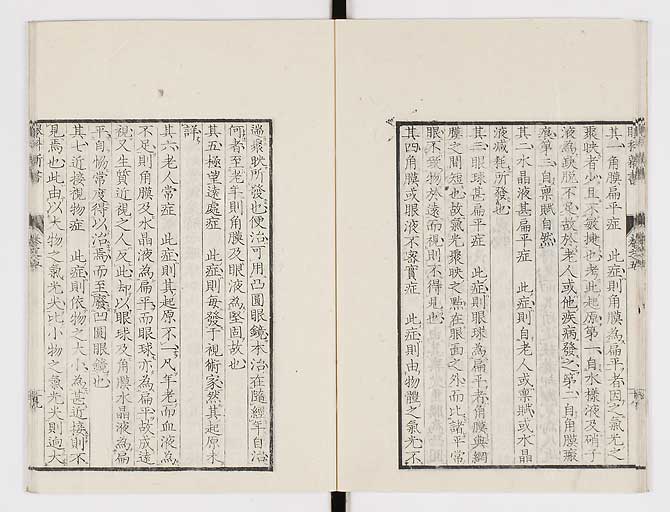 其一角膜扁平症　此症則角膜為扁平者因之氣光之
聚映者少且不敏捷也考此起原第一自水樣液及硝子
液為缺脫不足故於老人或他疾病發之第二自角膜瘢
痕第三自稟賦自然
其二水晶液甚扁平症　此症則自老人或稟賦或水晶
液減耗所發也
其三眼球甚扁平症　此症則眼球為扁平者角膜與網
膜之間短也故氣光聚映之點在眼面之外而比諸平常
眼不受物於遠而視則不得見也
其四角膜或眼液不密實症　此症則由物體之氣光不
湍聚映所發也便治可用凸圓眼鏡本治在隨經年自治
何者至老年則角膜及眼液為堅固故也
其五極望遠處症　此症則每發于視術家然其起原未
詳
其六老人常症　此症則其起原不一凡年老而血液為
不足則角膜及水晶液為扁平而眼球亦為扁平故成遠
視又生質近視之人反此却以眼球及角膜水晶液為扁
平自協常度得以治焉而至廢凹圓眼鏡也
其七近接視物症　此症則依物之大小為甚近接則不
見焉也此由以大物之氣光尖比小物之氣光尖則迫大
眼科新書